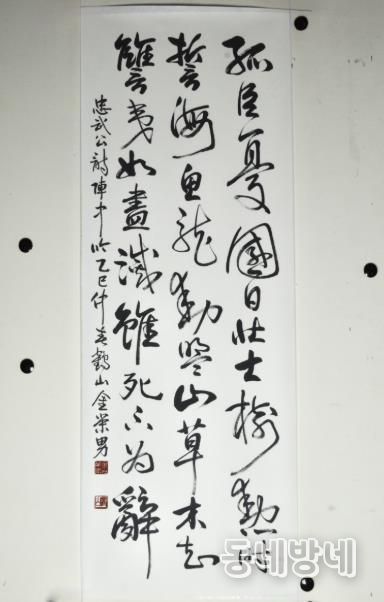 孤臣憂國日壯士樹勳時
誓海魚龍動盟山草木知
讐夷如盡滅雖死不为辭
忠武公詩陣中吟乙巳仲春鶴山金榮男
동네방네